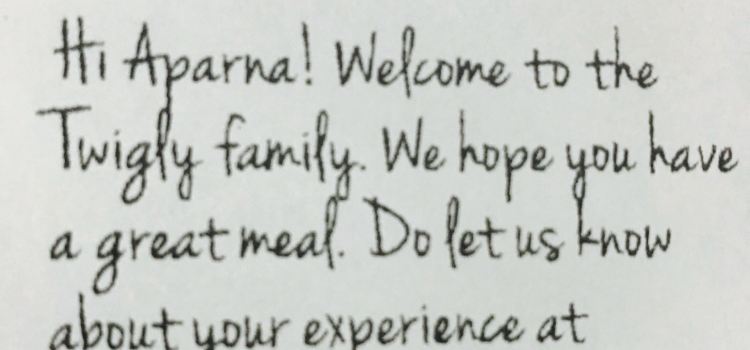 Hi Aparna! Welcome to the
Twigly family. We hope you have
a great meal. Do let us know
about your experience at